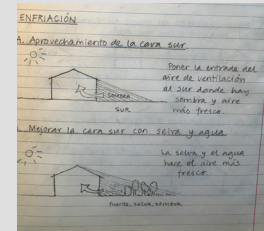 ENFRIACIÓN
A. Aprovechamiento de la cara sur
Poner la entrada del
aire de ventilación
al sur donde hay
sombra y aire
más fresco.
SOMBRA
SUR
Mejorar la cara sur con selva y agua
La selva y el agua
hace el aire más
fresco.
fuente, selva, sombra